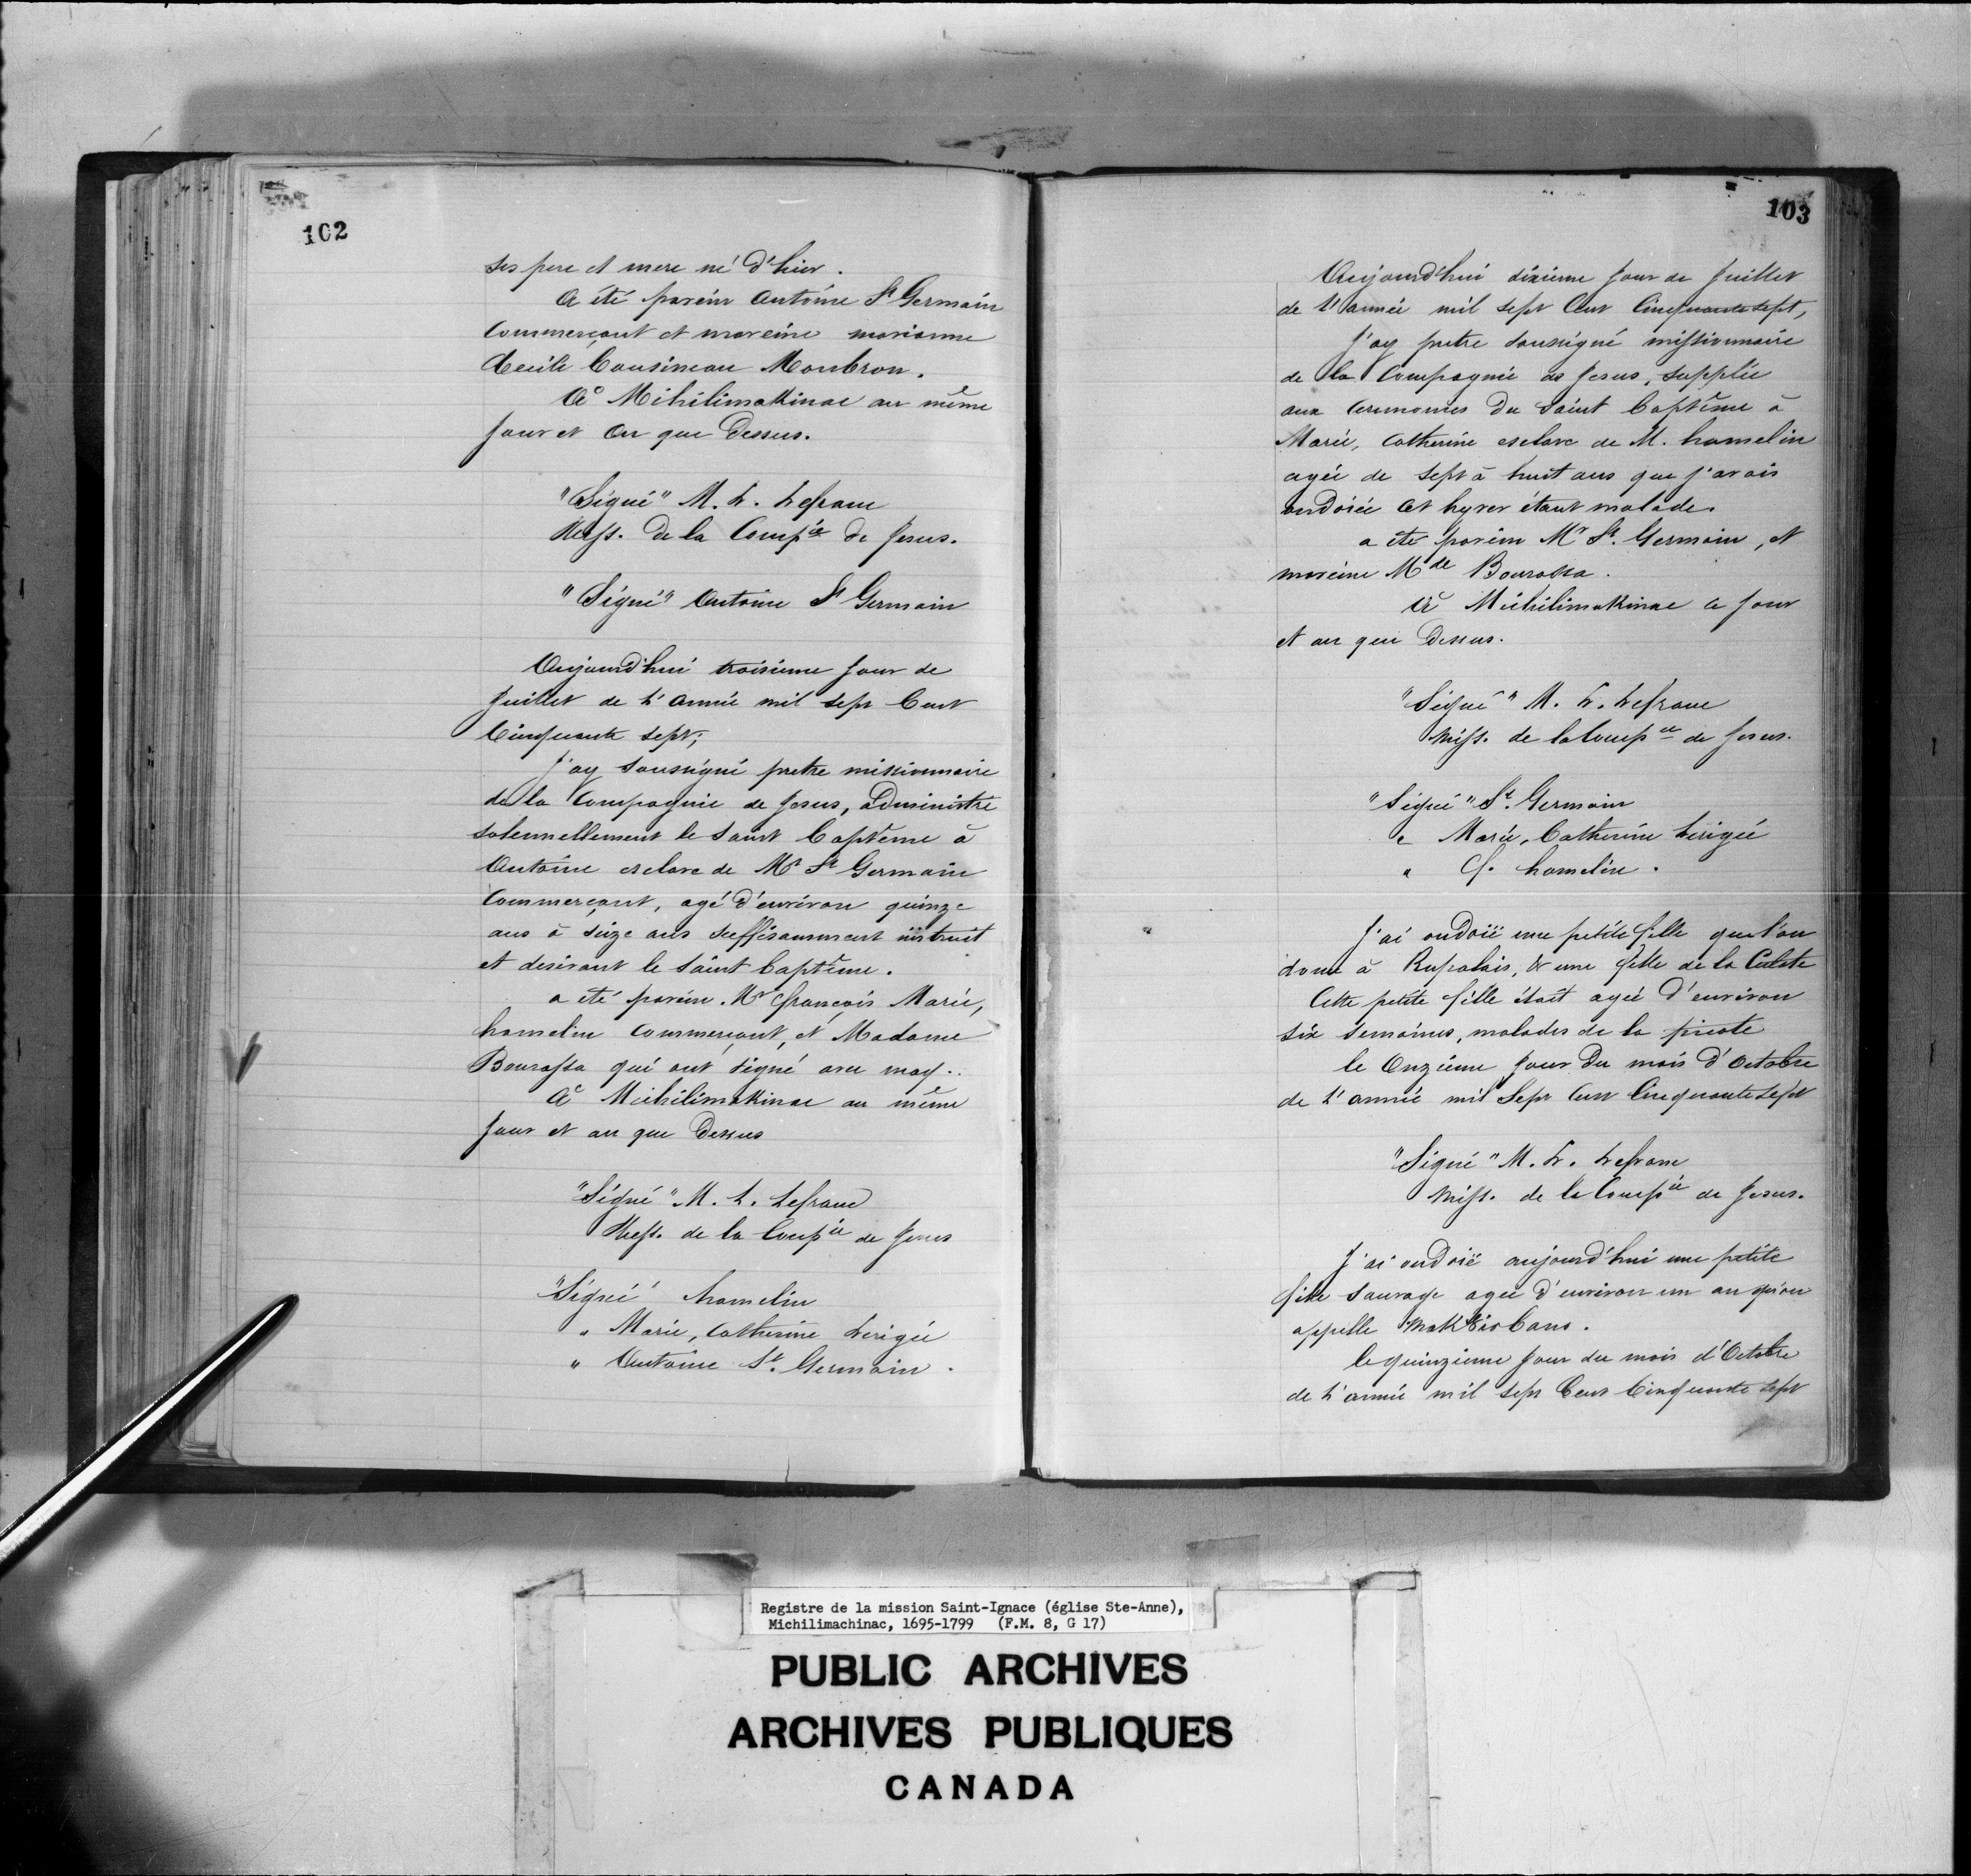 102
ses pere et mere né d'hier.
A été parein Antoine St Germain
Commerçant et mareine marianne
Cecile Cousineau Monbron.
A Mihilimakinac au même
jour et an que Dessus.
"Signé" M. L. Lefranc
Miss. De la Compie De Jesus.
"Signé" Antoine St Germain
Aujourd'hui troisieme Jour de
Juillet de L'Année mil sept Cent
Cinquante sept;
J'ay soussigné pretre missionnaire
de la Compagnie de Jesus, administré
solennellement le saint baptême à
Antoine esclave de Mr St Germain
Commerçant, agé d'environ quinze
ans à seize ans suffisamment instruit
et desirant le saint baptême.
a été parein Mr françois Marie,
hamelin Commerçant, et Madame
Bourassa qui ont signé avec moy..
A Michilimakinac au même
Jour et an que Dessus
"Signé" M. L. Lefranc
Miss. de la Compie de Jesus
"Signé" hamelin
" Marie, Catherine Lerigée
" Antoine St. Germain.
103
Aujourd'hui dixieme Jour de Juillet
de L'année mil sept Cent Cinquante sept,
J'ay pretre soussigné missionnaire
de la Compagnie de Jesus, supplée
aux ceremonies Du saint baptême à
Marie, Catherine esclave de M. hamelin
agée de sept à huit ans que j'avois
ondoiée cet hyver étant malade.
a été parein Mr St. Germain, et
mareine Mde Bourassa.
A Michilimakinac ce Jour
et an que Dessus.
"Signé" M. L. Lefranc
Miss. de la Compie de Jesus.
"Signé" St. Germain
" Marie, Catherine Lerigée
" Ch. hamelin.
J'ai ondoïé une petite fille que l'on
donne à Rupalais, & une fille de la Culete
Cette petite fille étoit agée D'environ
six semaines, malades de la picote
le Onzieme Jour Du mois D'Octobre
de L'année mil Sept Cent Cinquante Sept
"Signé" M. L. Lefranc
Miss. de la Compie de Jesus.
J'ai ondoïé aujourd'hui une petite
fille sauvage agée d'environ un an qu'on
appelle
le quinzieme Jour du mois d'Octobre
de L'année mil sept Cent Cinquante sept
Registre de la mission Saint-Ignace (église Ste-Anne),
Michilimachinac, 1695-1799 (F.M. 8, G 17)
PUBLIC ARCHIVES
ARCHIVES PUBLIQUES
CANADA